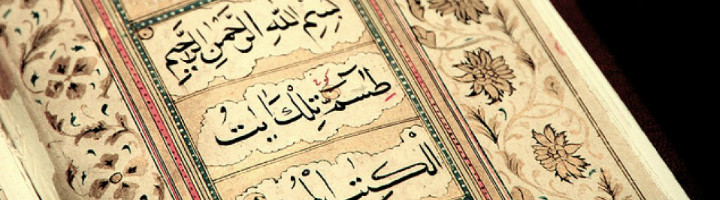 بِسْمِ اللّٰهِ الرَّحْمٰنِ الرَّحِيْمِ
طٰسٓمّٓ تِلْكَ اٰيٰتُ
الْكِتٰبِ